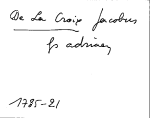 De La Croix Jacobus
fs adriaen
1785-21